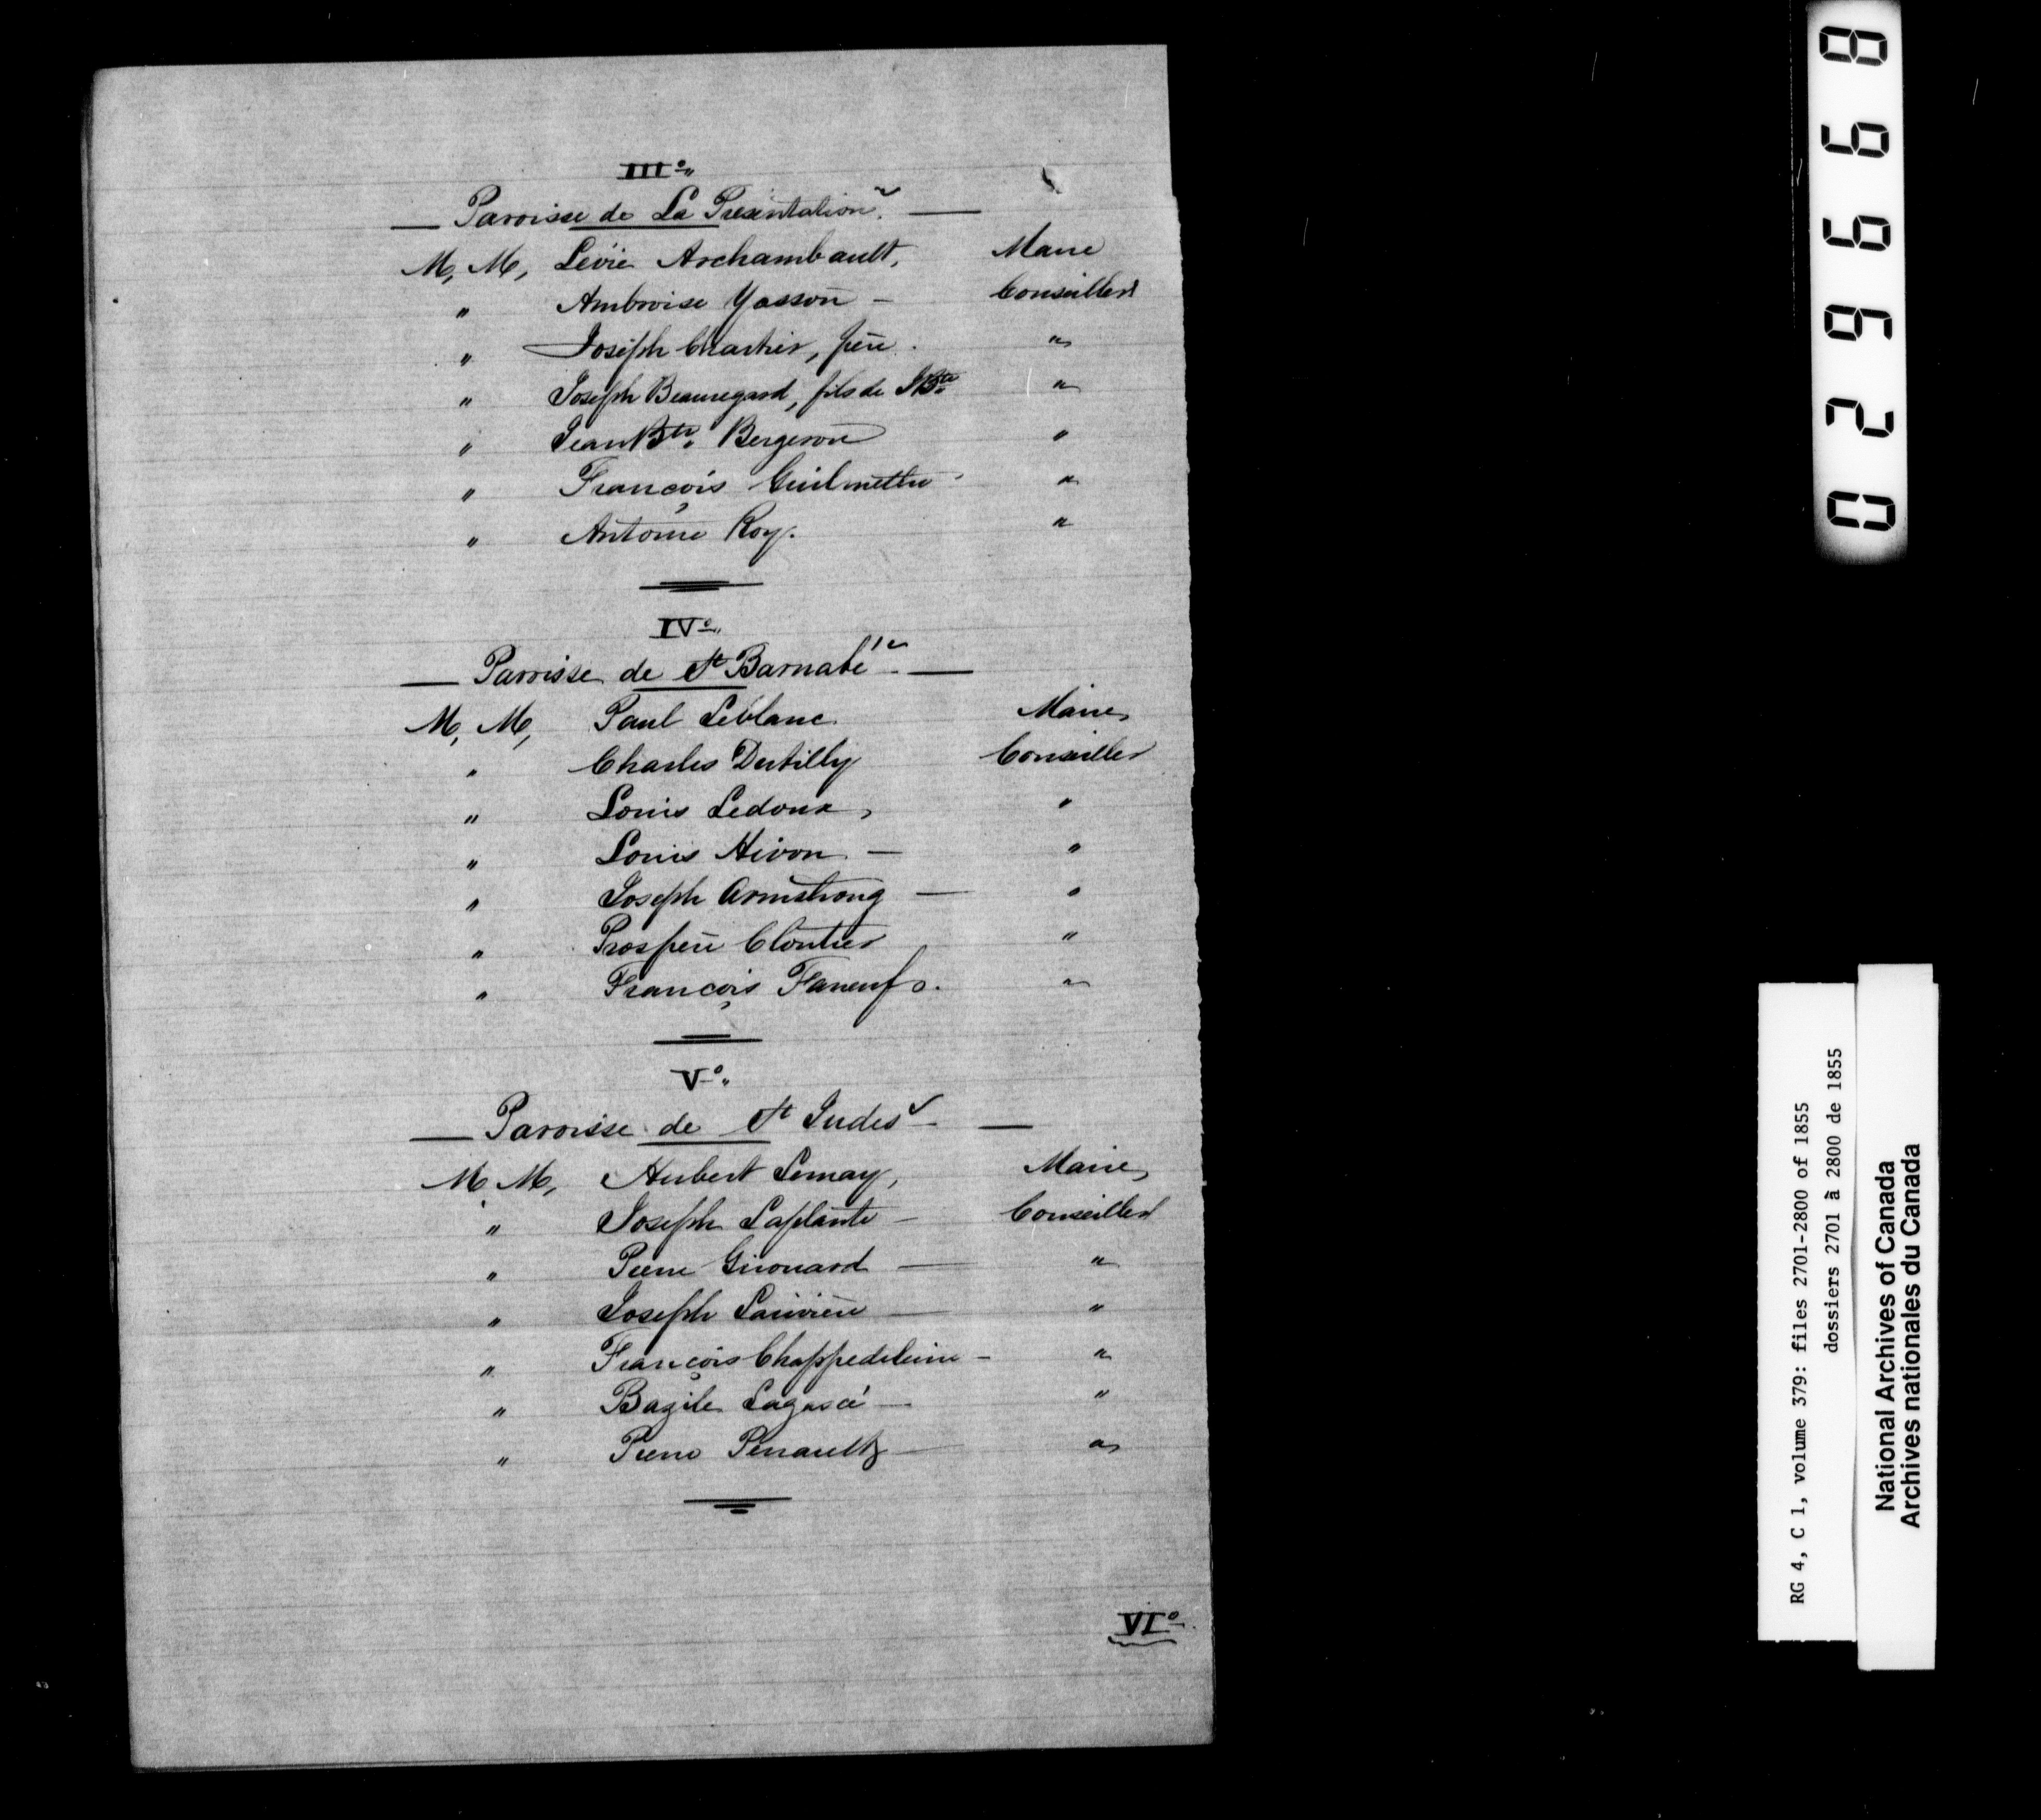 III°
Paroisse de La Présentation
M, M, Lévie Archambault, Maire
" Ambroise Yasson – Conseiller
" Joseph Chartier, père. "
" Joseph Beauregard, fils de JBte "
" Jean Bte. Bergeron "
" François Guilmette "
" Antoine Roy. "
IV°
Paroisse de St Barnabé
M, M, Paul Leblanc Maire
" Charles Dutilly Conseiller
" Louis Ledoux, "
" Louis Hivon – "
" Joseph Armstrong — "
" Prospère Cloutier "
" François Faneuf. "
V°
Paroisse de St Judes
M M, Hubert Lemay, Maire
" Joseph Laplante – Conseiller
" Pierre Girouard — "
" Joseph Larivière — "
" François Chappedeleine – "
" Bazile Lagassé — "
" Pierre Penault — "
VI°
029668
RG 4, C 1, volume 379: files 2701-2800 of 1855
dossiers 2701 à 2800 de 1855
National Archives of Canada
Archives nationales du Canada